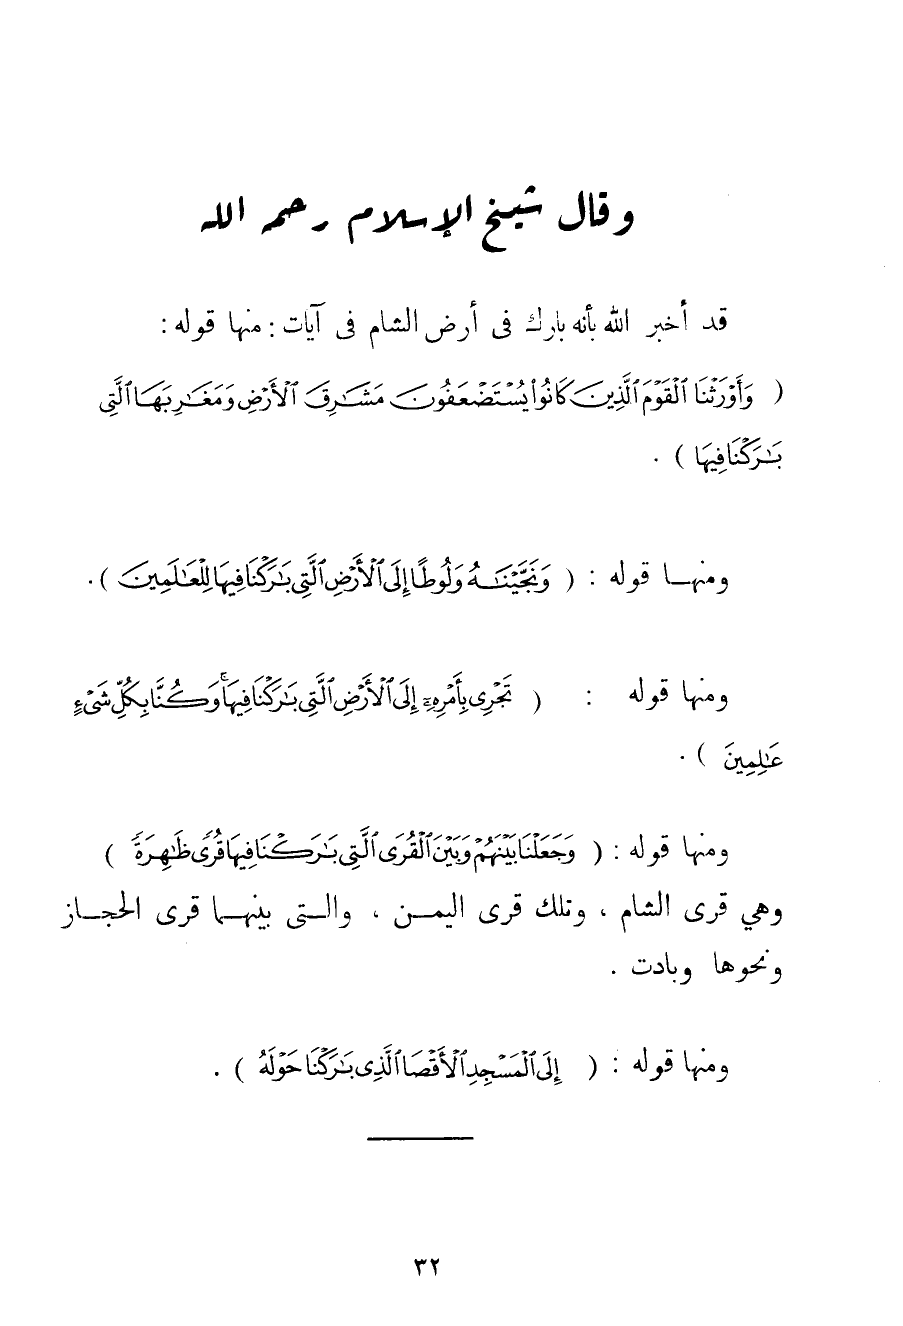 وقال شيخ الإسلام رحمه الله
قد أخبر الله بأنه بارك فى أرض الشام فى آيات : منها قوله :
( وَأَوْرَثْنَا ٱلْقَوْمَ ٱلَّذِينَ كَانُوا۟ يُسْتَضْعَفُونَ مَشَٰرِقَ ٱلْأَرْضِ وَمَغَٰرِبَهَا ٱلَّتِى
بَٰرَكْنَا فِيهَا ) .
ومنها قوله : ( وَنَجَّيْنَٰهُ وَلُوطًا إِلَى ٱلْأَرْضِ ٱلَّتِى بَٰرَكْنَا فِيهَا لِلْعَٰلَمِينَ ) .
ومنها قوله : ( تَجْرِى بِأَمْرِهِۦٓ إِلَى ٱلْأَرْضِ ٱلَّتِى بَٰرَكْنَا فِيهَا ۚ وَكُنَّا بِكُلِّ شَىْءٍ
عَٰلِمِينَ ) .
ومنها قوله : ( وَجَعَلْنَا بَيْنَهُمْ وَبَيْنَ ٱلْقُرَى ٱلَّتِى بَٰرَكْنَا فِيهَا قُرًى ظَٰهِرَةً )
وهي قرى الشام ، وتلك قرى اليمن ، والتى بينها قرى الحجاز
ونحوها وبادت .
ومنها قوله : ( إِلَى ٱلْمَسْجِدِ ٱلْأَقْصَا ٱلَّذِى بَٰرَكْنَا حَوْلَهُ ) .
٣٢